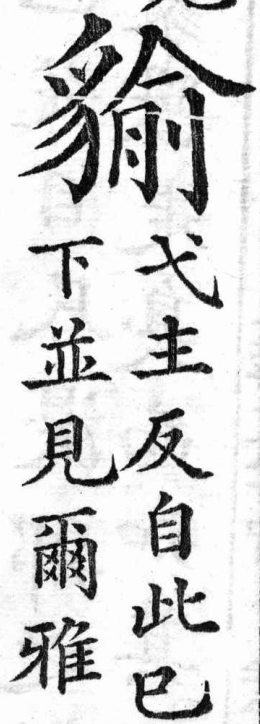 貐
弋主反自此已
下並見爾雅